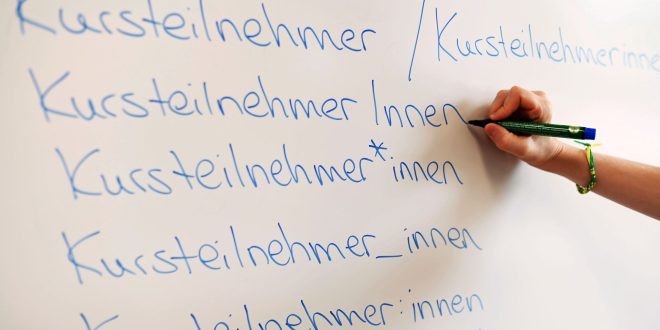 Kursteilnehmer / Kursteilnehmerinne
Kursteilnehmer Innen
Kursteilnehmer*innen
Kursteilnehmer_innen
Kursteilnehmer:innen